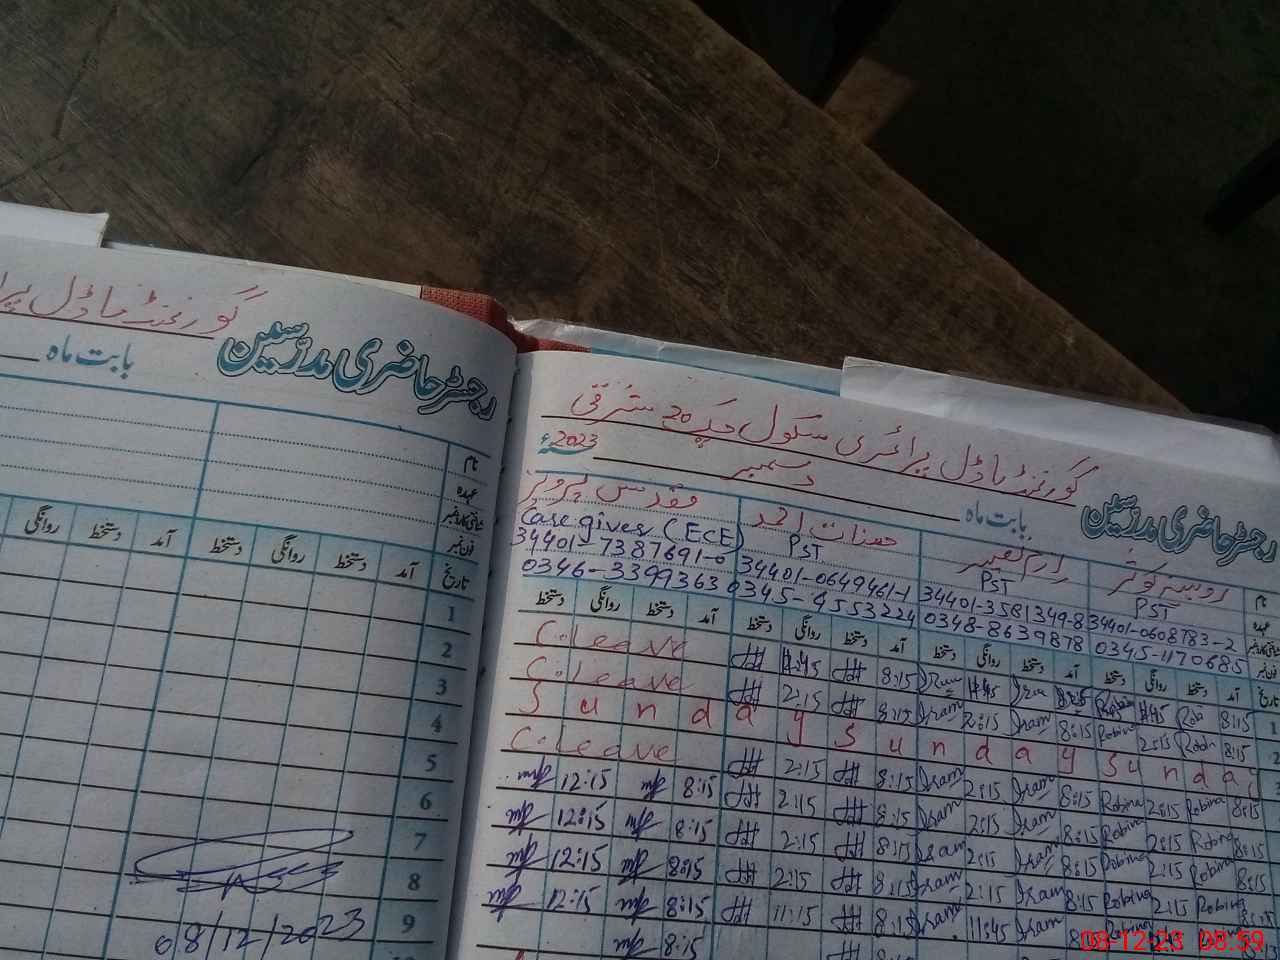 رجسٹر حاضری مدرسین
گورنمنٹ ماڈل پرائمری سکول چک 20 شرقی
بابت ماہ دسمبر 2023ء
نام
روبینہ کوثر
حسنات احمد
مقدس پرویز
عہدہ
PST
PST
PST
Care givers (ECE)
شناختی کارڈ نمبر
34401-0608783-2
34401-3581349-8
34401-0649461-1
34401-7387691-0
فون نمبر
0345-1170685
0348-8639878
0345-4553224
0346-3399363
تاریخ آمد دستخط روانگی دستخط آمد دستخط روانگی دستخط آمد دستخط روانگی دستخط آمد دستخط روانگی دستخط
C. leave 8:15 8:15
C. leave 2:15 8:15 Iram 2:15 Iram 8:15 Robina 2:15 8:15
Sunday Sunday Sunday
C. leave 2:15 8:15 Iram 2:15 Iram 8:15 Robina 2:15 Robina 8:15
mp 12:15 mp 8:15 2:15 8:15 Iram 2:15 Iram 8:15 Robina 2:15 Robina 8:15
mp 12:15 mp 8:15 2:15 8:15 Iram 2:15 Iram 8:15 Robina 2:15 Robina 8:15
mp 12:15 mp 8:15 2:15 8:15 Iram 2:15 Iram 8:15 Robina 2:15 Robina 8:15
mp 12:15 mp 8:15 11:15 8:15 Iram 11:45 Iram
mp 8:15
رجسٹر حاضری مدرسین
گورنمنٹ ماڈل
بابت ماہ
نام
عہدہ
شناختی کارڈ نمبر
فون نمبر
تاریخ آمد دستخط روانگی دستخط آمد دستخط روانگی
1
2
3
4
5
6
7
8
9
08/12/2023
08-12-23 08:59